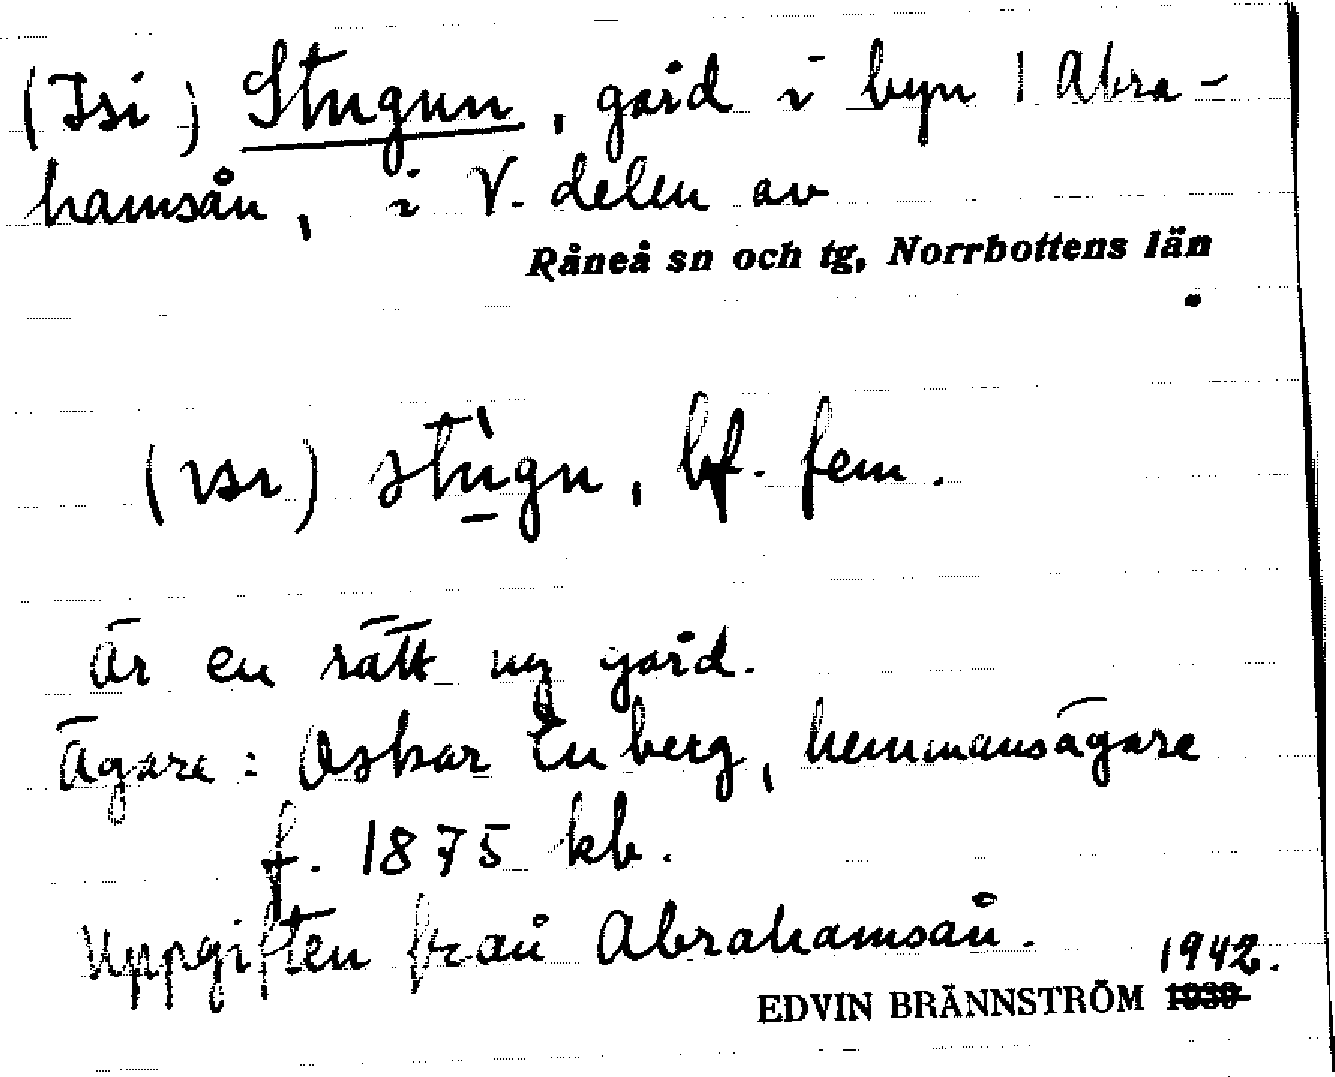 (Isi) Stugun, gård i byn 1 Abra-
hamsån, i V. delen av
Råneå sn och tg, Norrbottens län
(ısı) stùgn, bf. fem.
Är en rätt ny gård.
Ägare: Oskar Enberg, hemmansägare
f. 1875 kb.
Uppgiften från Abrahamsån.
1942.
EDVIN BRÄNNSTRÖM 1939